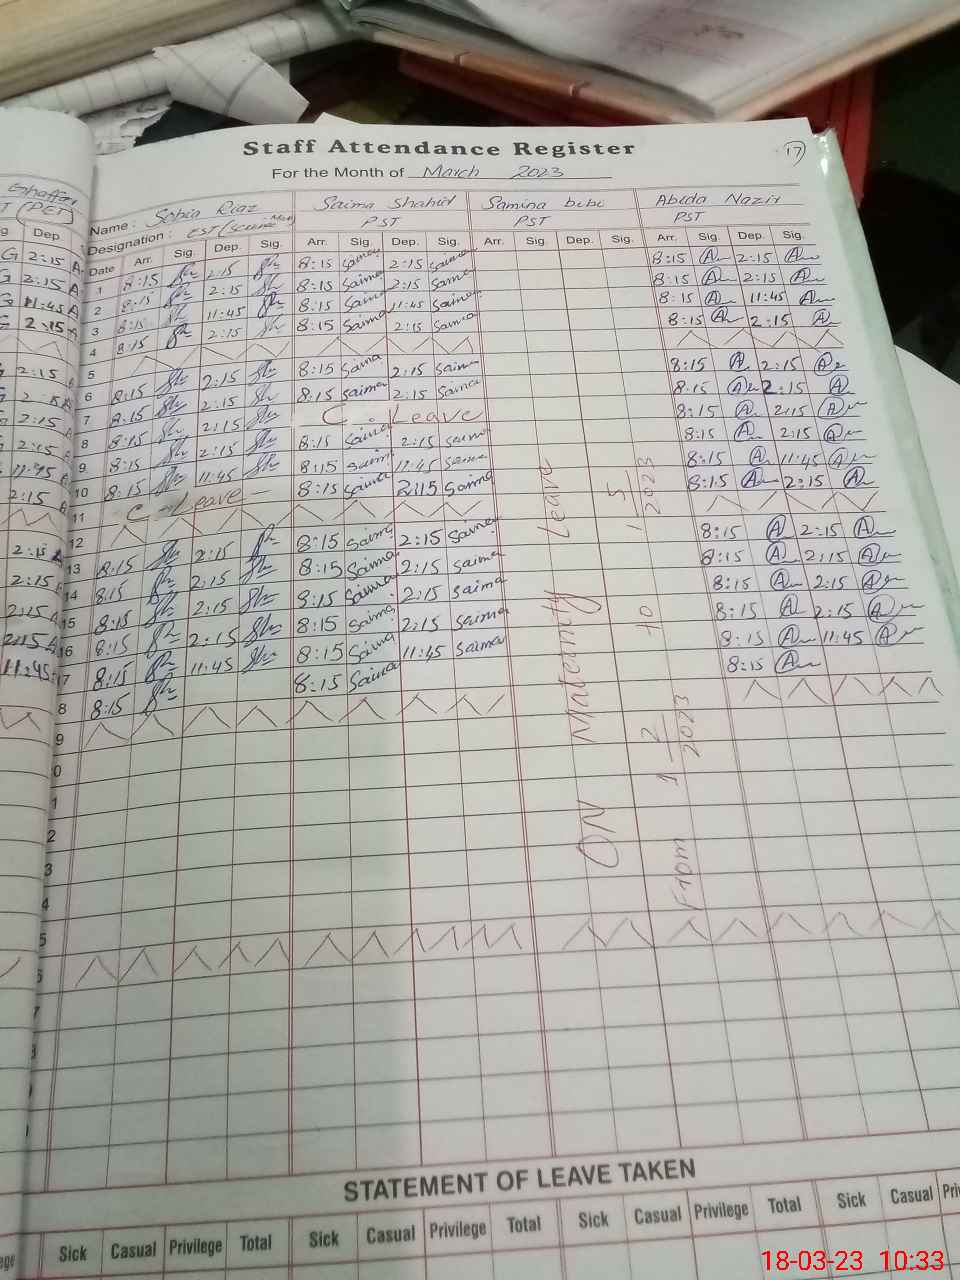 Staff Attendance Register
17
For the Month of March 2023
Name : Sobia Riaz Saima Shahid Samina bibi Abida Nazir
Designation : EST (Science Math) PST PST PST
(PET)
Date Arr. Sig. Dep. Sig. Arr. Sig. Dep. Sig. Arr. Sig. Dep. Sig. Arr. Sig. Dep. Sig.
1 8:15 2:15 8:15 Saima 2:15 Saima 8:15 2:15
2 8:15 2:15 8:15 Saima 2:15 Saima 8:15 2:15
3 8:15 11:45 8:15 Saima 11:45 Saima 8:15 11:45
4 8:15 2:15 8:15 Saima 2:15 Saima 8:15 2:15
5
6 8:15 2:15 8:15 Saima 2:15 Saima 8:15 2:15
7 8:15 2:15 8:15 Saima 2:15 Saima 8:15 2:15
8 8:15 2:15 C. Leave 8:15 2:15
9 8:15 2:15 8:15 Saima 2:15 Saima 8:15 2:15
10 8:15 11:45 8:15 Saima 11:45 Saima 8:15 11:45
11 C - Leave - 8:15 Saima 2:15 Saima 8:15 2:15
12
13 8:15 2:15 8:15 Saima 2:15 Saima 8:15 2:15
14 8:15 2:15 8:15 Saima 2:15 Saima 8:15 2:15
15 8:15 2:15 8:15 Saima 2:15 Saima 8:15 2:15
16 8:15 2:15 8:15 Saima 2:15 Saima 8:15 2:15
17 8:15 11:45 8:15 Saima 11:45 Saima 8:15 11:45
8 8:15 8:15 Saima 8:15
9
0
1
2
3
4
5
6
7
ON Maternity Leave
From 1 2 2023 to 1 5 2023
STATEMENT OF LEAVE TAKEN
Sick Casual Privilege Total Sick Casual Privilege Total Sick Casual Privilege Total Sick Casual Pri
18-03-23 10:33